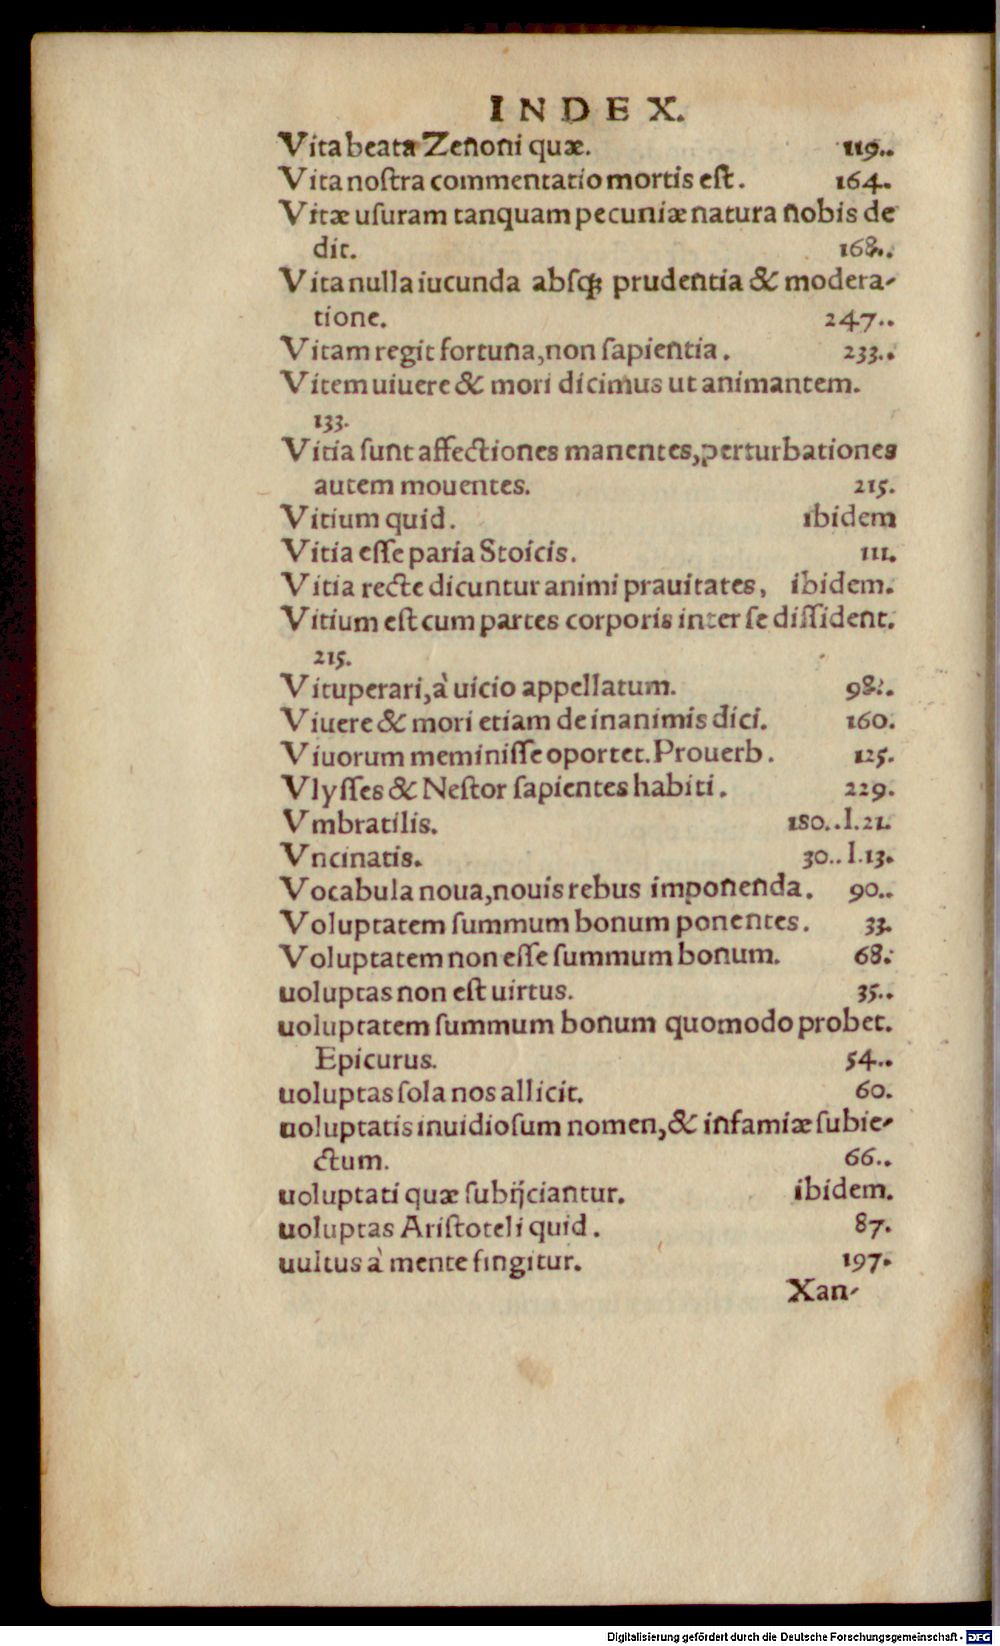 INDEX.
Vita beata Zenoni quæ. 119..
Vita noſtra commentatio mortis eſt. 164.
Vitæ uſuram tanquam pecuniæ natura nobis de
dit. 168..
Vita nulla iucunda abſq; prudentia & modera-
tione. 247..
Vitam regit fortuna, non ſapientia. 233..
Vitem uiuere & mori dicimus ut animantem.
133.
Vitia ſunt affectiones manentes, perturbationes
autem mouentes. 215.
Vitium quid. ibidem
Vitia eſſe paria Stoicis. 111.
Vitia recte dicuntur animi prauitates, ibidem.
Vitium eſt cum partes corporis inter ſe diſſident.
215.
Vituperari, à uicio appellatum. 98..
Viuere & mori etiam de inanimis dici. 160.
Viuorum meminiſſe oportet. Prouerb. 125.
Vlyſſes & Neſtor ſapientes habiti. 229.
Vmbratilis. 180..l.21.
Vncinatis. 30..l.13.
Vocabula noua, nouis rebus imponenda. 90..
Voluptatem ſummum bonum ponentes. 33.
Voluptatem non eſſe ſummum bonum. 68.
uoluptas non eſt uirtus. 35..
uoluptatem ſummum bonum quomodo probet.
Epicurus. 54..
uoluptas ſola nos allicit. 60.
uoluptatis inuidioſum nomen, & infamiæ ſubie-
ctum. 66..
uoluptati quæ ſubijciantur. ibidem.
uoluptas Ariſtoteli quid. 87.
uultus à mente fingitur. 197.
Xan-
Digitalisierung gefördert durch die Deutsche Forschungsgemeinschaft - DFG